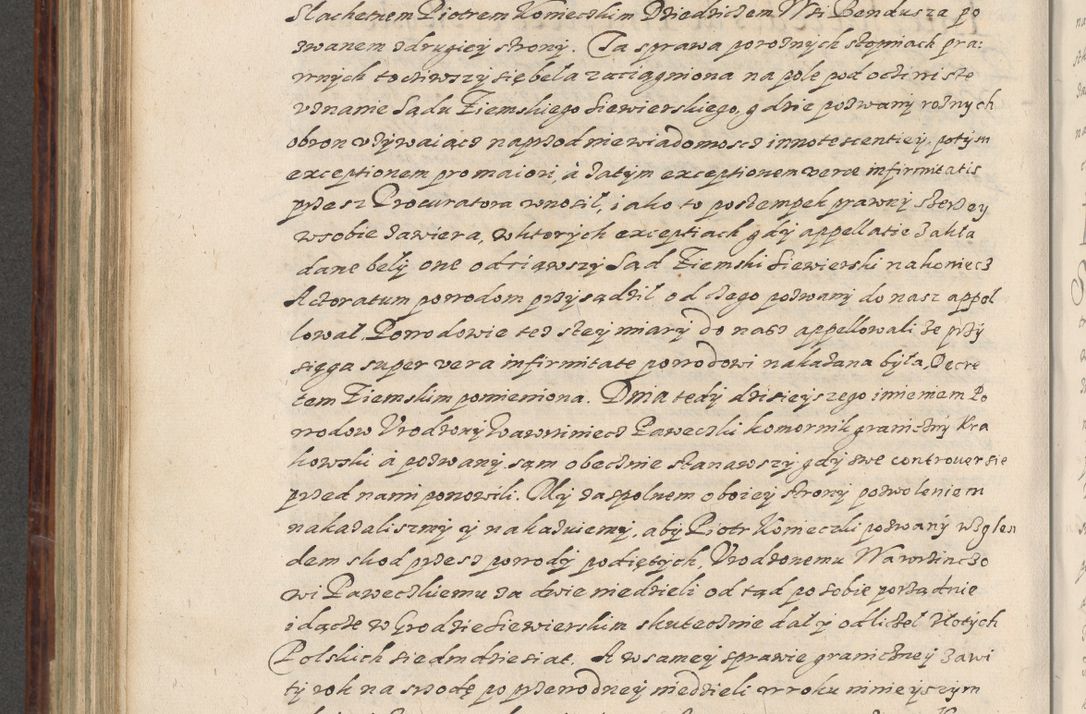 Slachetnem Piotrem Konieczkim Dziedzicem Wsi Bendusza po
zwanem zdrugiey strony. Ta sprawa porożnych stopniach pra:
wnych tocziwszy się bela zaciągniona na pole pod oczi wiste
vznanie Sądu Ziemskiego Siewierskiego, gdzie pozwany rożnych
obron vżywaiącz naprzod niewiadomoscz innotescentiey, potym
exceptionem pro maiori, à zatym exceptionem verae infirmitatis
przesz Procuratora wnosił, iako to postempek prawny szerzey
wsobie zawiera, wktorych exceptiach gdy appellatie zakła
dane bely one odciąwszy Sad Ziemski Siewierski nakoniecz
Actoratum powodom przysądził od czego pozwany do nasz appel
lowal, Powodowie tesz stey miary do nasz appellowali że przy
sięga super vera infirmitate powodowi nakazana była, Decre
tem Ziemskim pomieniona. Dnia tedy dzisieyszego imieniem Po
wodow Vrodzony Wawrziniecz Paweczki komornik graniczny Kra
kowski à pozwany sąm obecznie stanąwszy gdy swe controversie
przed nami ponowili. My zaspolnem oboiey strony pozwoleniem
nakazaliszmy y nakazuiemy, aby Piotr Konieczki pozwany wzglen
dem skod przesz powody podiętych, Vrodzonemu Wawrzinczo
wi Paweczkiemu za dwie niedzieli od tąd po sobie porzadnie
idącze w Grodzie Siewierskim skutecznie dal y odliczel złotych
Polskich siedmdziesiat. A wsamey sprawie graniczney zawi
ty rok na zwodę po przewodney niedzieli w roku ninieyszym